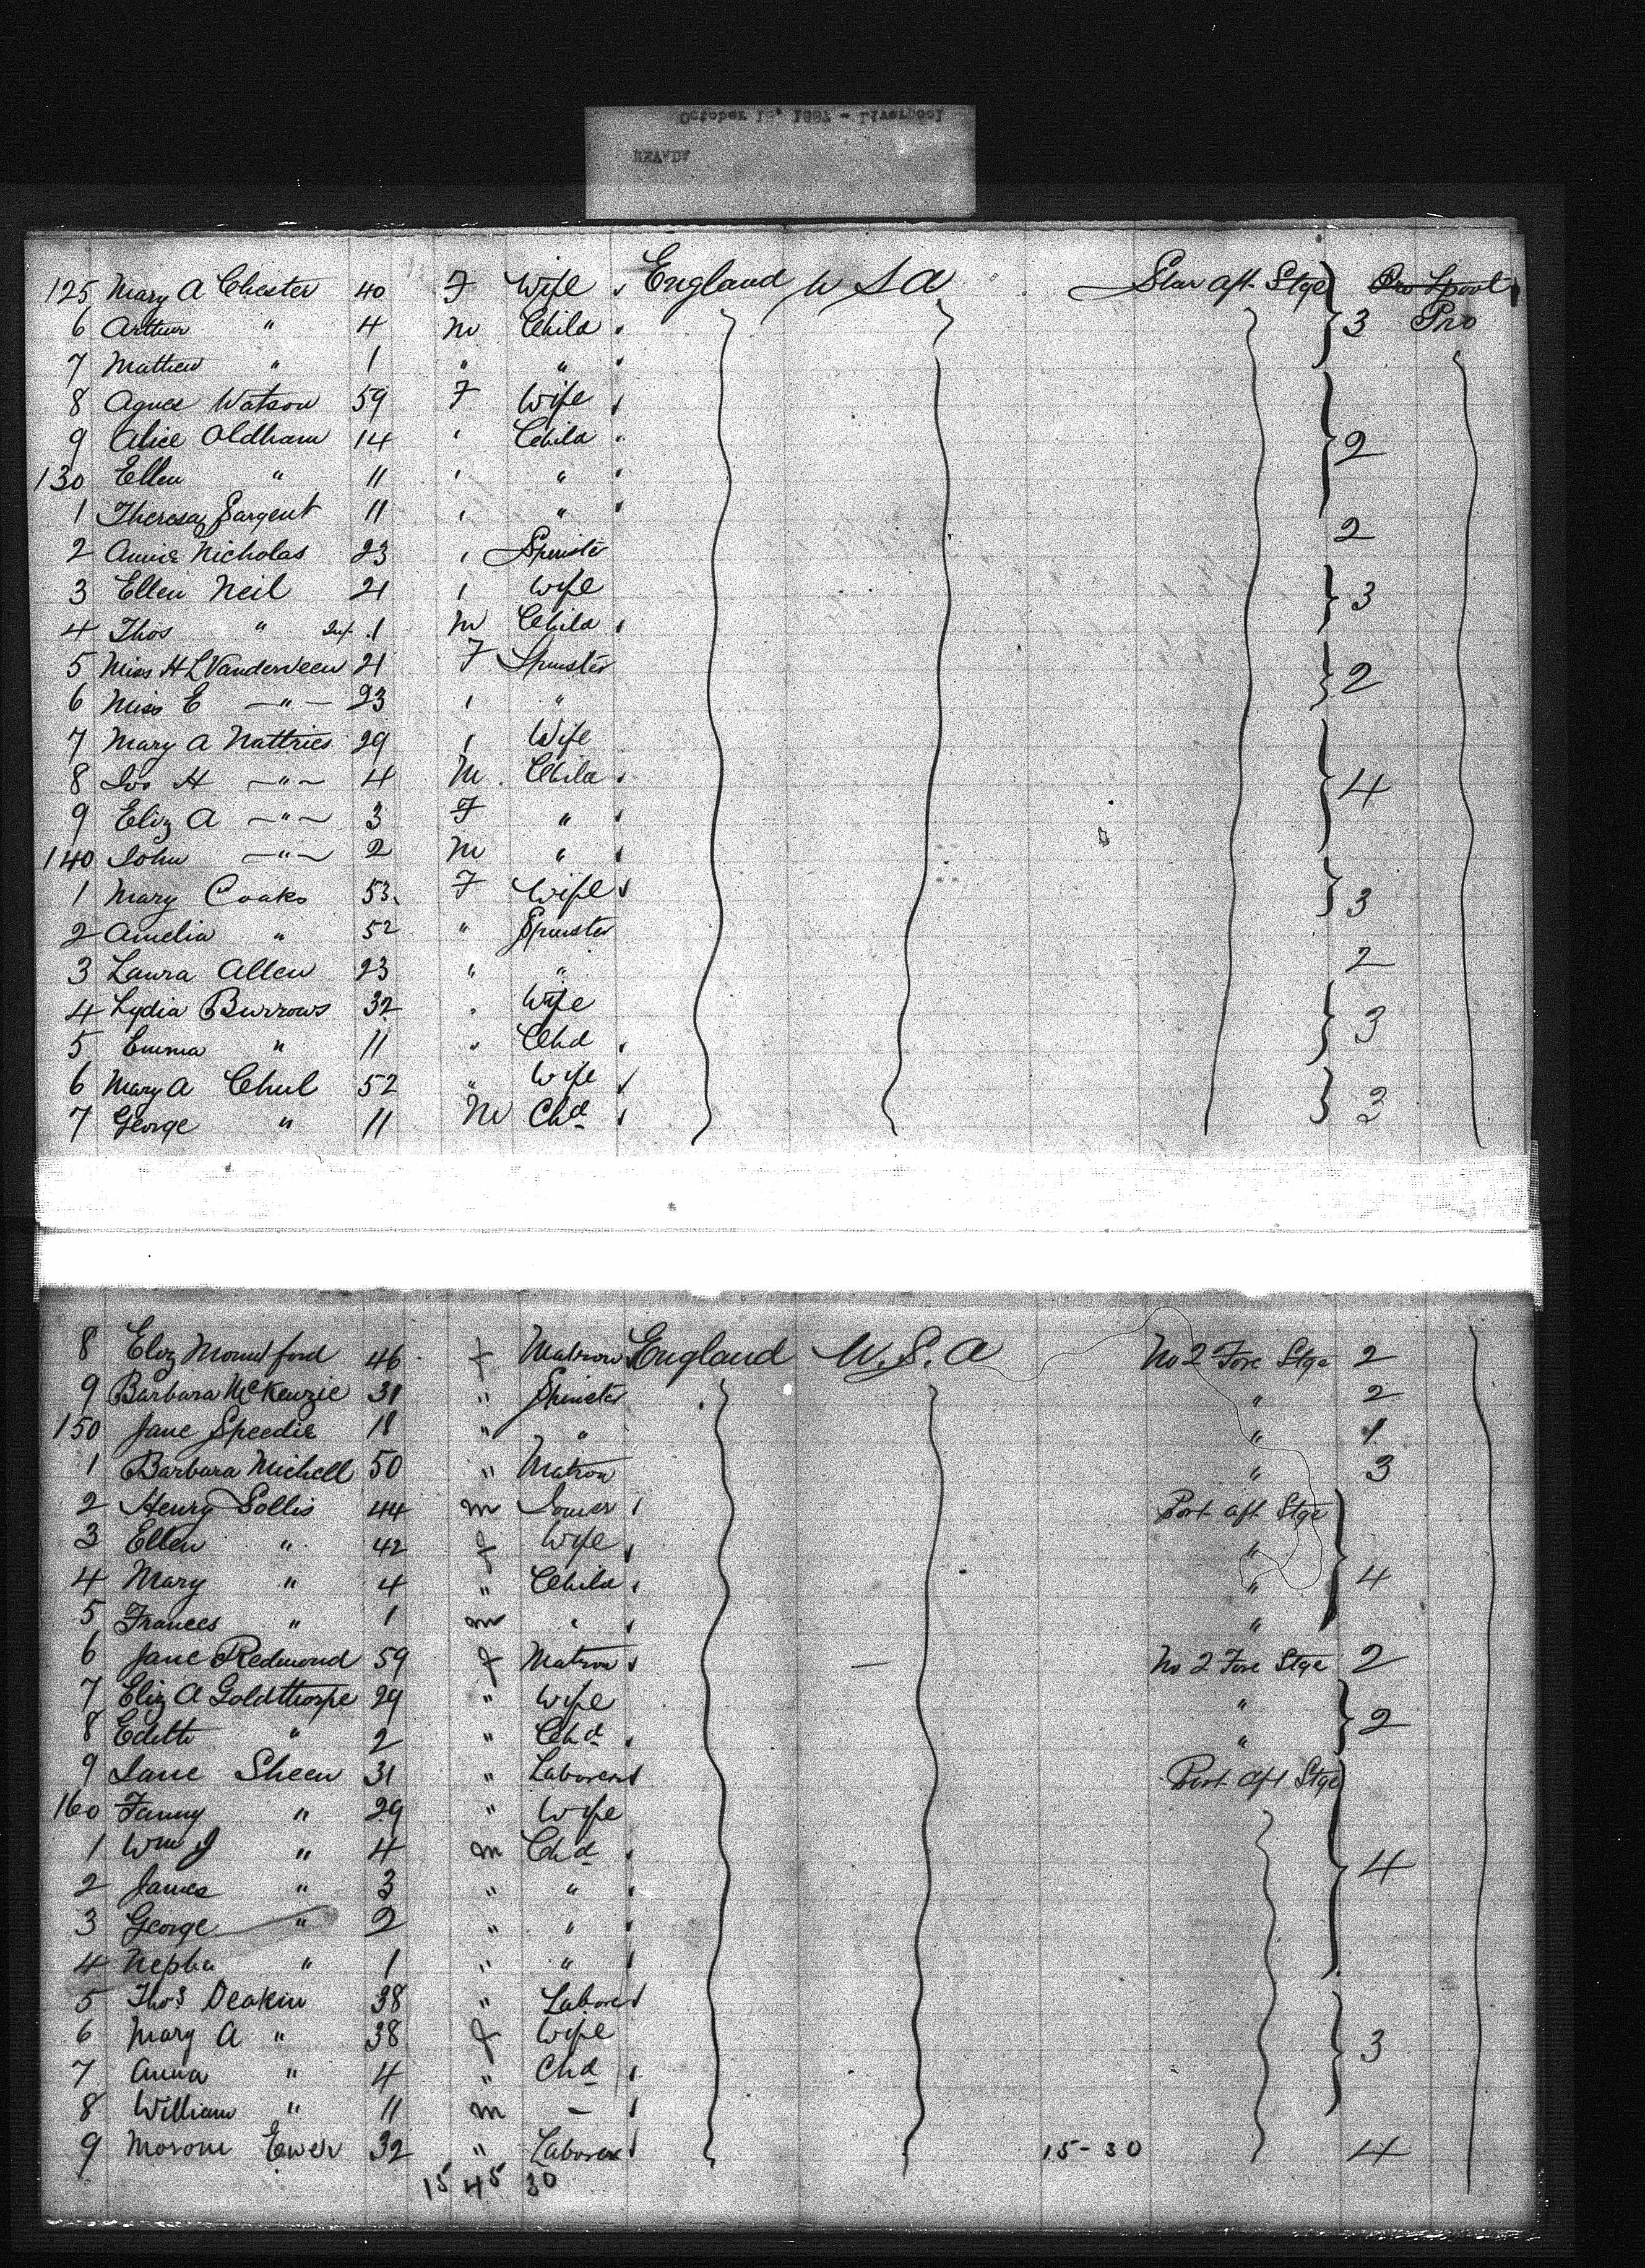 October 18, 1887 - Liverpool
NEVADA
125 Mary A Chester 40 F Wife England U S A Star aft Stge 3 Pro Lpool
6 Arthur " 4 M Child Pro
7 Mathew " 1 " "
8 Agnes Watson 59 F Wife
9 Alice Oldham 14 " Child 2
130 Ellen " 11 " "
1 Theresa Sargent 11 " "
2 Annie Nicholas 23 " Spinster 2
3 Ellen Neil 21 " Wife 3
4 Thos " Inf. 1 M Child
5 Miss H L Vanderveen 21 F Spinster 2
6 Miss E " 23 " "
7 Mary A Nattries 29 " Wife
8 H " 4 M Child 4
9 Eliz A " 3 F "
140 John " 2 M "
1 Mary Coaks 53 F Wife 3
2 Amelia " 52 " Spinster
3 Laura Allen 23 " " 2
4 Lydia Burrows 32 " Wife 3
5 Emma " 11 " Chd
6 Mary A 52 " Wife
7 George " 11 M Chd
8 Eliz Mountford 46 f Matron England U.S.A No 2 Fore Stge 2
9 Barbara McKenzie 31 " Spinster " 2
150 Jane Speedie 18 " " " 1
1 Barbara Michell 50 " Matron " 3
2 Henry Sollis 44 m Port aft Stge
3 Ellen " 42 f Wife "
4 Mary " 4 " Child " 4
5 Frances " 1 m " "
6 Jane Redmond 59 f Matron No 2 Fore Stge 2
7 Eliz A Goldthorpe 29 " Wife "
8 Edith " 2 " Chd " 2
9 Jane Sheen 31 " Laborer Port aft Stge
160 Fanny " 29 " Wife
1 Wm J " 4 m Chd 4
2 James " 3 " "
3 George " 2 " "
4 Nepha " 1 " "
5 Thos Deakin 38 " Laborer
6 Mary A " 38 f Wife 3
7 Anna " 4 " Chd
8 William " 11 m -
9 Moroni Ewer 32 " Laborer 15-30 4
15 45 30